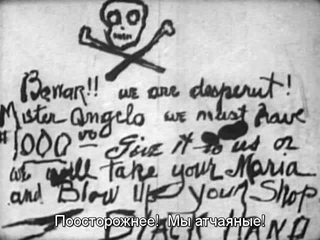 Bewar!! we are desperut!
Mister Angelo we must have
$1000 00 Give it to us or
we will take your Maria
and Blow Up your Shop.
BLACK HAND
Поосторожнее! Мы атчаяные!